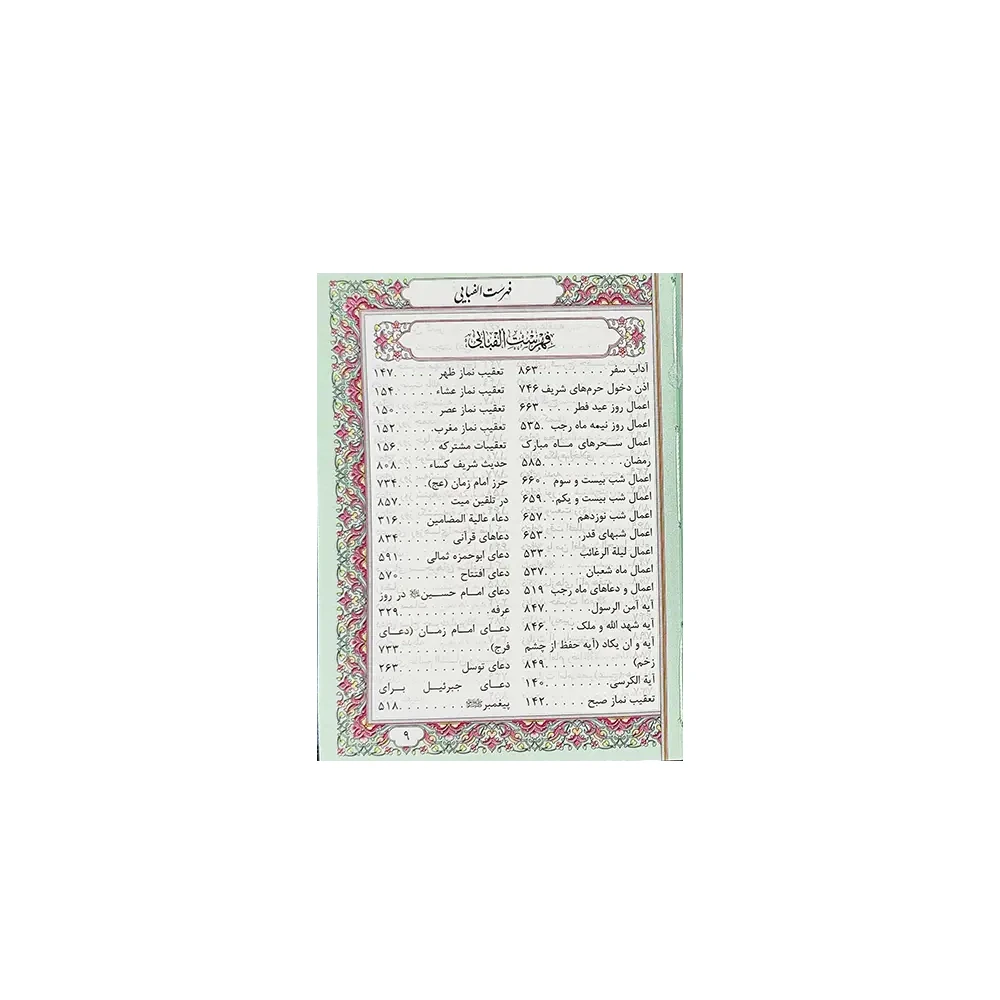 فهرست الفبایی
فهرست الفبایی
آداب سفر . . . . . . . . . . ۸۶۳
اذن دخول حرم‌های شریف ۷۴۶
اعمال روز عید فطر . . . . . ۶۶۳
اعمال روز نیمه ماه رجب . . ۵۳۵
اعمال سـحرهای مـاه مبارک
رمضان . . . . . . . . . . . . ۵۸۵
اعمال شب بیست و سوم . . ۶۶۰
اعمال شب بیست و یکم . . ۶۵۹
اعمال شب نوزدهم . . . . . ۶۵۷
اعمال شبهای قدر . . . . . . ۶۵۳
اعمال لیلة الرغائب . . . . . ۵۳۳
اعمال ماه شعبان . . . . . . ۵۳۷
اعمال و دعاهای ماه رجب ۵۱۹
آیه آمن الرسول . . . . . . . ۸۴۷
آیه شهد الله و ملک . . . . . ۸۴۶
آیه و ان یکاد (آیه حفظ از چشم
زخم) . . . . . . . . . . . . . ۸۴۹
آیة الکرسی . . . . . . . . . . ۱۴۰
تعقیب نماز صبح . . . . . . ۱۴۲
تعقیب نماز ظهر . . . . . . ۱۴۷
تعقیب نماز عشاء . . . . . ۱۵۴
تعقیب نماز عصر . . . . . . ۱۵۰
تعقیب نماز مغرب . . . . . ۱۵۲
تعقیبات مشترکه . . . . . . ۱۵۶
حدیث شریف کساء . . . . ۸۰۸
حرز امام زمان (عج) . . . . ۷۳۴
در تلقین میت . . . . . . . ۸۵۷
دعاء عالیة المضامین . . . . ۳۱۶
دعاهای قرآنی . . . . . . . ۸۳۴
دعای ابوحمزه ثمالی . . . . ۵۹۱
دعای افتتاح . . . . . . . . ۵۷۰
دعای امام حسین ﷺ در روز
عرفه . . . . . . . . . . . . . ۳۲۹
دعـای امام زمـان (دعـای
فرج) . . . . . . . . . . . . . ۷۳۳
دعای توسل . . . . . . . . ۲۶۳
دعـای جبرئیـل بـرای
پیغمبر ﷺ . . . . . . . . . ۵۱۸
۹